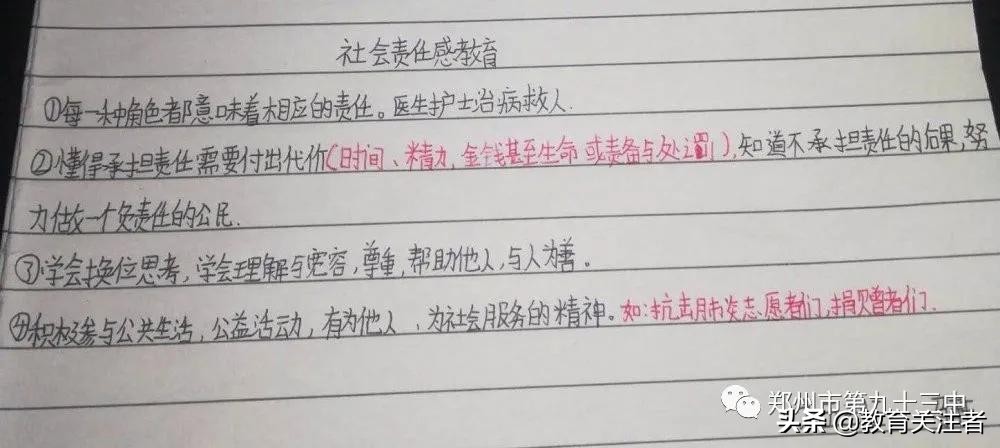 社会责任感教育
①每一种角色都意味着相应的责任。医生护士治病救人.
②懂得承担责任需要付出代价(时间、精力,金钱甚至生命或责备与处罚),知道不承担责任的后果,努
力做一个负责任的公民.
③学会换位思考,学会理解与宽容,尊重,帮助他人,与人为善。
④积极参与公共生活,公益活动,有为他人、为社会服务的精神。如:抗击肺炎志愿者们,捐赠者们.
郑州市第九十三中
头条@教育关注者